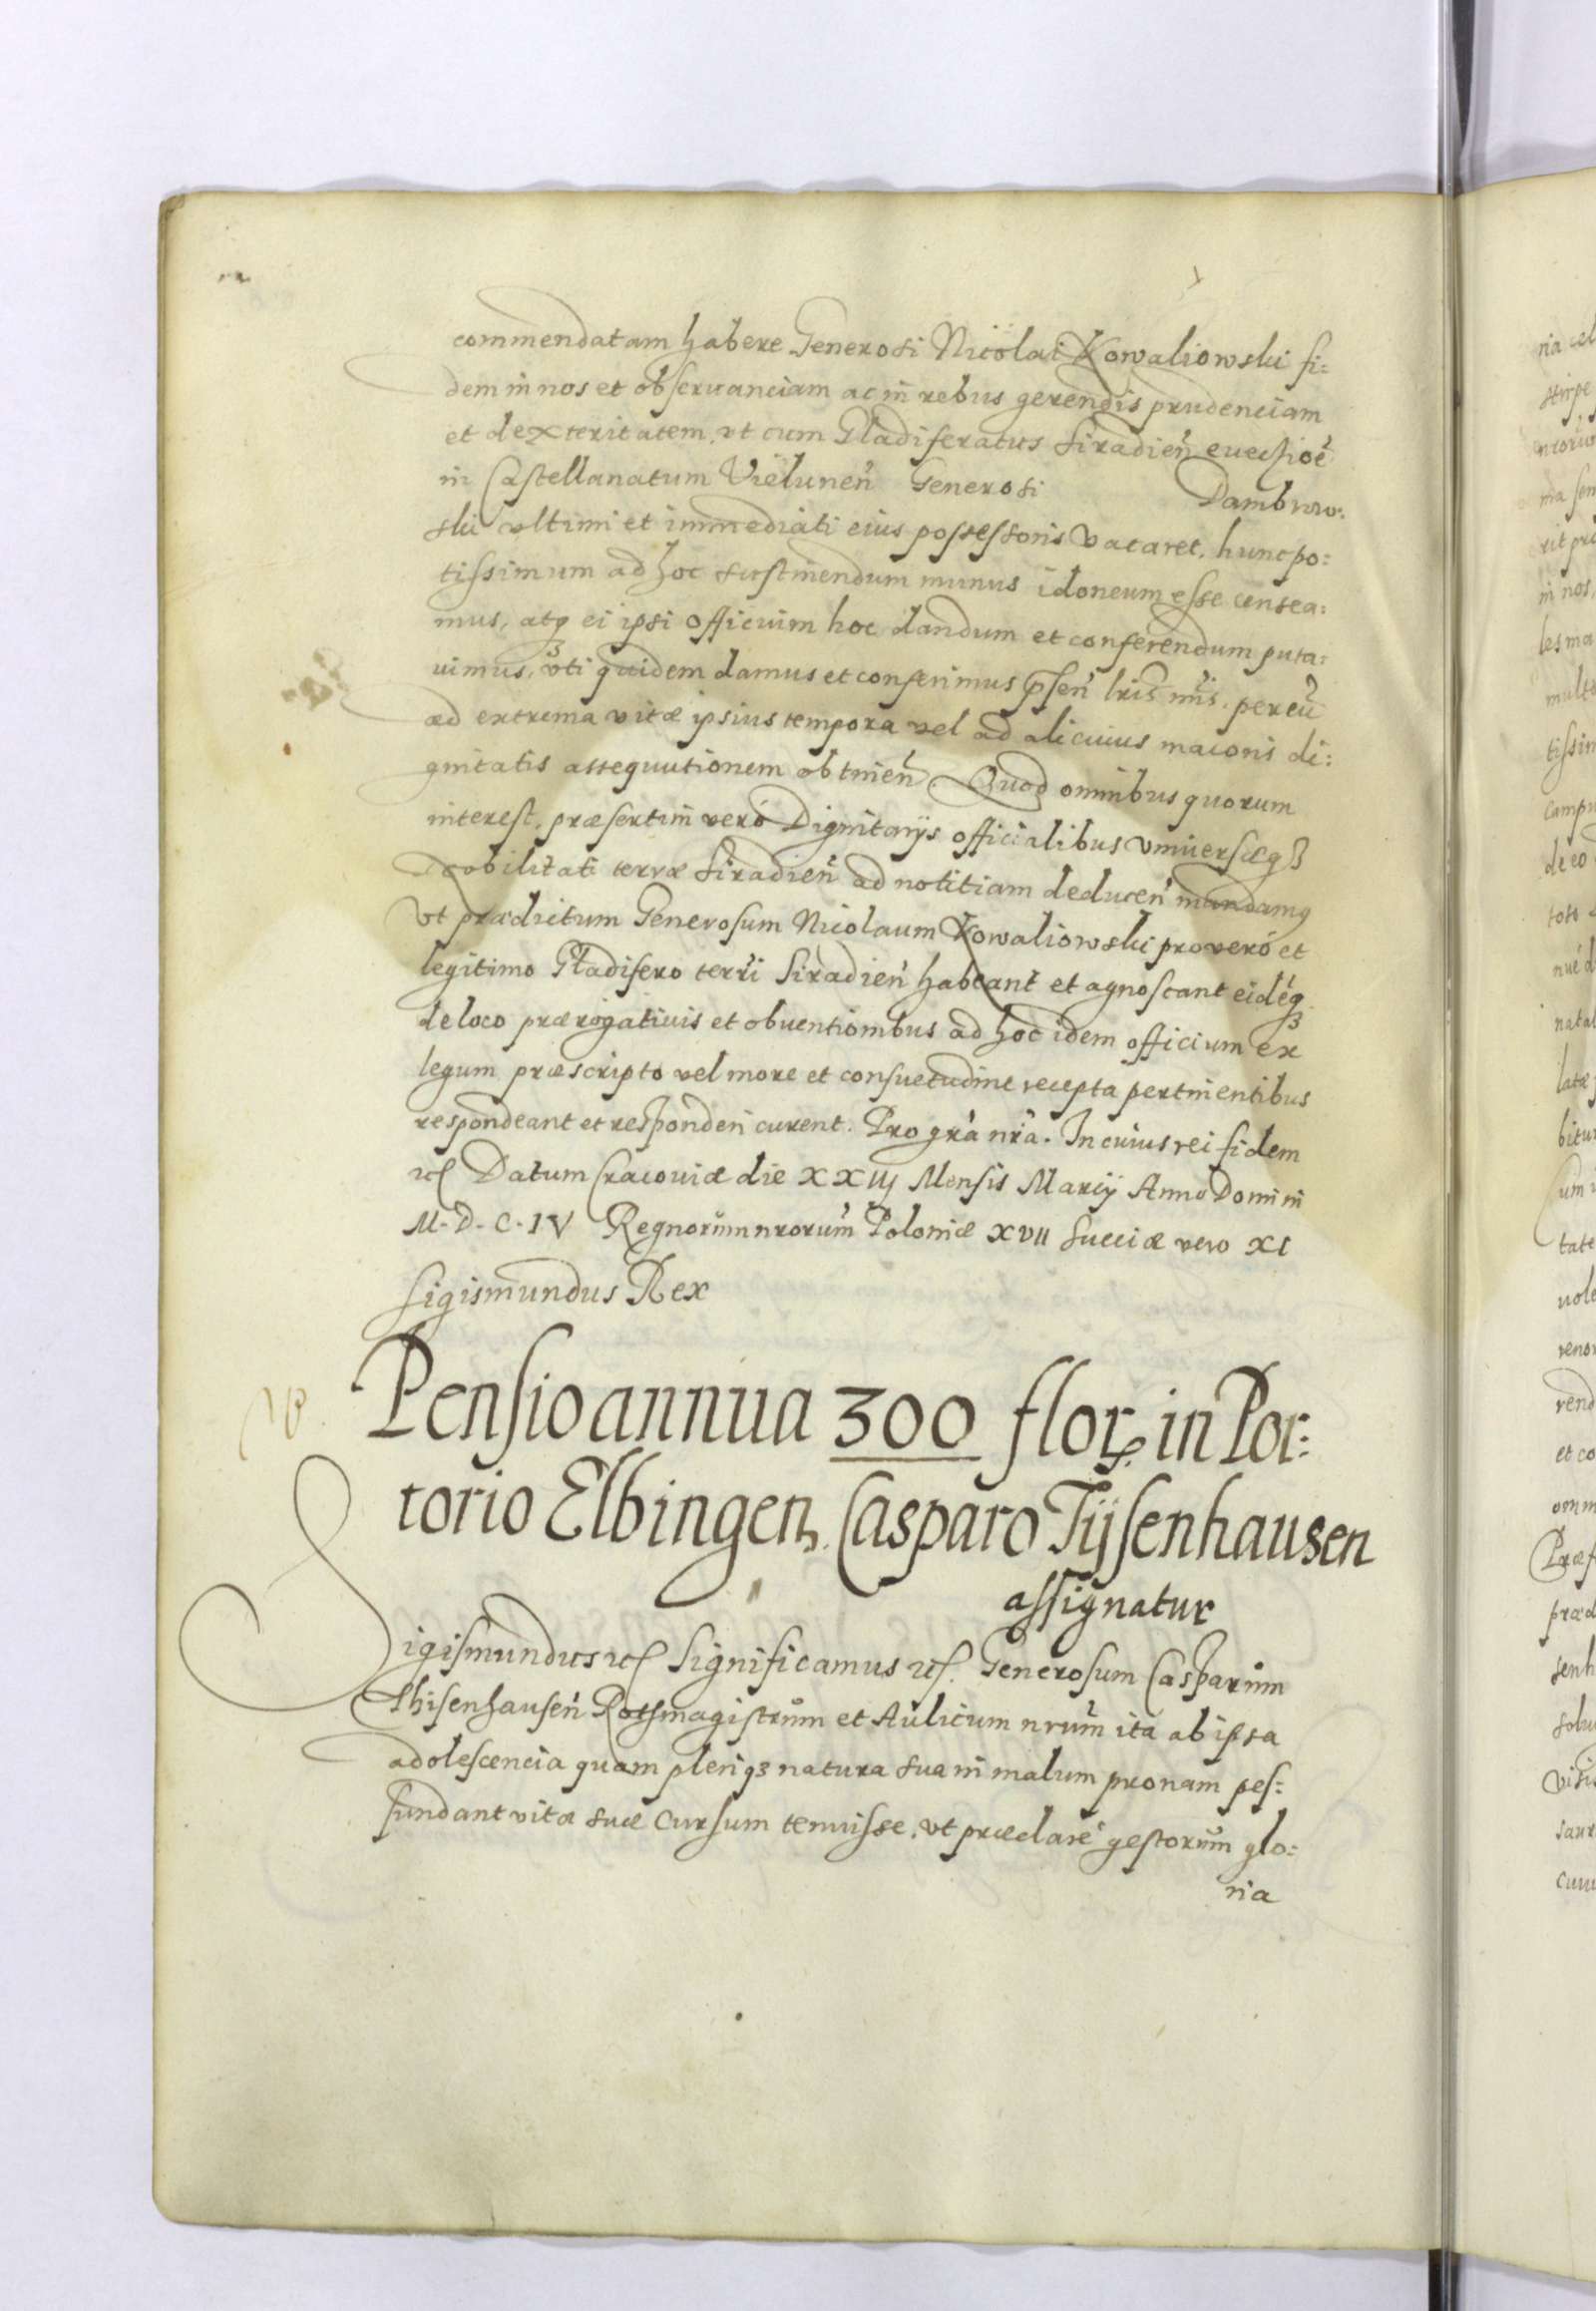 commendatam habere Generosi Nicolai Kowaliowski fi:
dem in nos et obseruanciam ac in rebus gerendis prudenciam
et dexteritatem, vt cum Gladiferatus Siradień euectioē
in Castellanatum Vieluneń Generosi Dambrow:
ski vltimi et immediati eius possessoris vacaret, hunc po:
tissimum ad hoc sustinendum munus idoneum esse censea:
mus, atqȝ ei ipsi officium hoc dandum et conferendum puta:
uimus, vti quidem damus et conferimus pseń lris nris, per eū
ad extrema vitæ ipsius tempora vel ad alicuius maioris di:
gnitatis assequutionem obtineń. Quod omnibus quorum
interest, præsertim veró Dignitarijs officialibus vniuersæqȝ
Nobilitati terræ Siradień ad notitiam deduceń mandamus
vt prædictum Generosum Nicolaum Kowaliowski pro veró et
legitimo Gladifero terri Siradień habeant et agnoscant eidéqȝ
de loco prærogatiuis et obuentionibus ad hoc idem officium ex
legum præscripto vel more et consuetudine recepta pertinentibus
respondeant et responderi curent. Pro grà nrà. In cuius rei fidem
etc Datum Cracouiæ die XXIIJ Mensis Marcij Anno Domini
M. D. C. IV Regnorum nrorum Poloniæ XVII Sueciæ vero XI
Sigismundus Rex
Pensio annua 300 flor. in Por:
torio Elbingen. Casparo Tijsenhausen
assignatur
Sigismundus etc Significamus etc. Generosum Casparum
Thisenhauseń Rothmagistrum et Aulicum nrum ita ab ipsa
adolescencia quam pleriqȝ natura sua in malum pronam pes:
sundant vitæ suæ cursum tenuisse, vt præclare gestorum glo:
ria